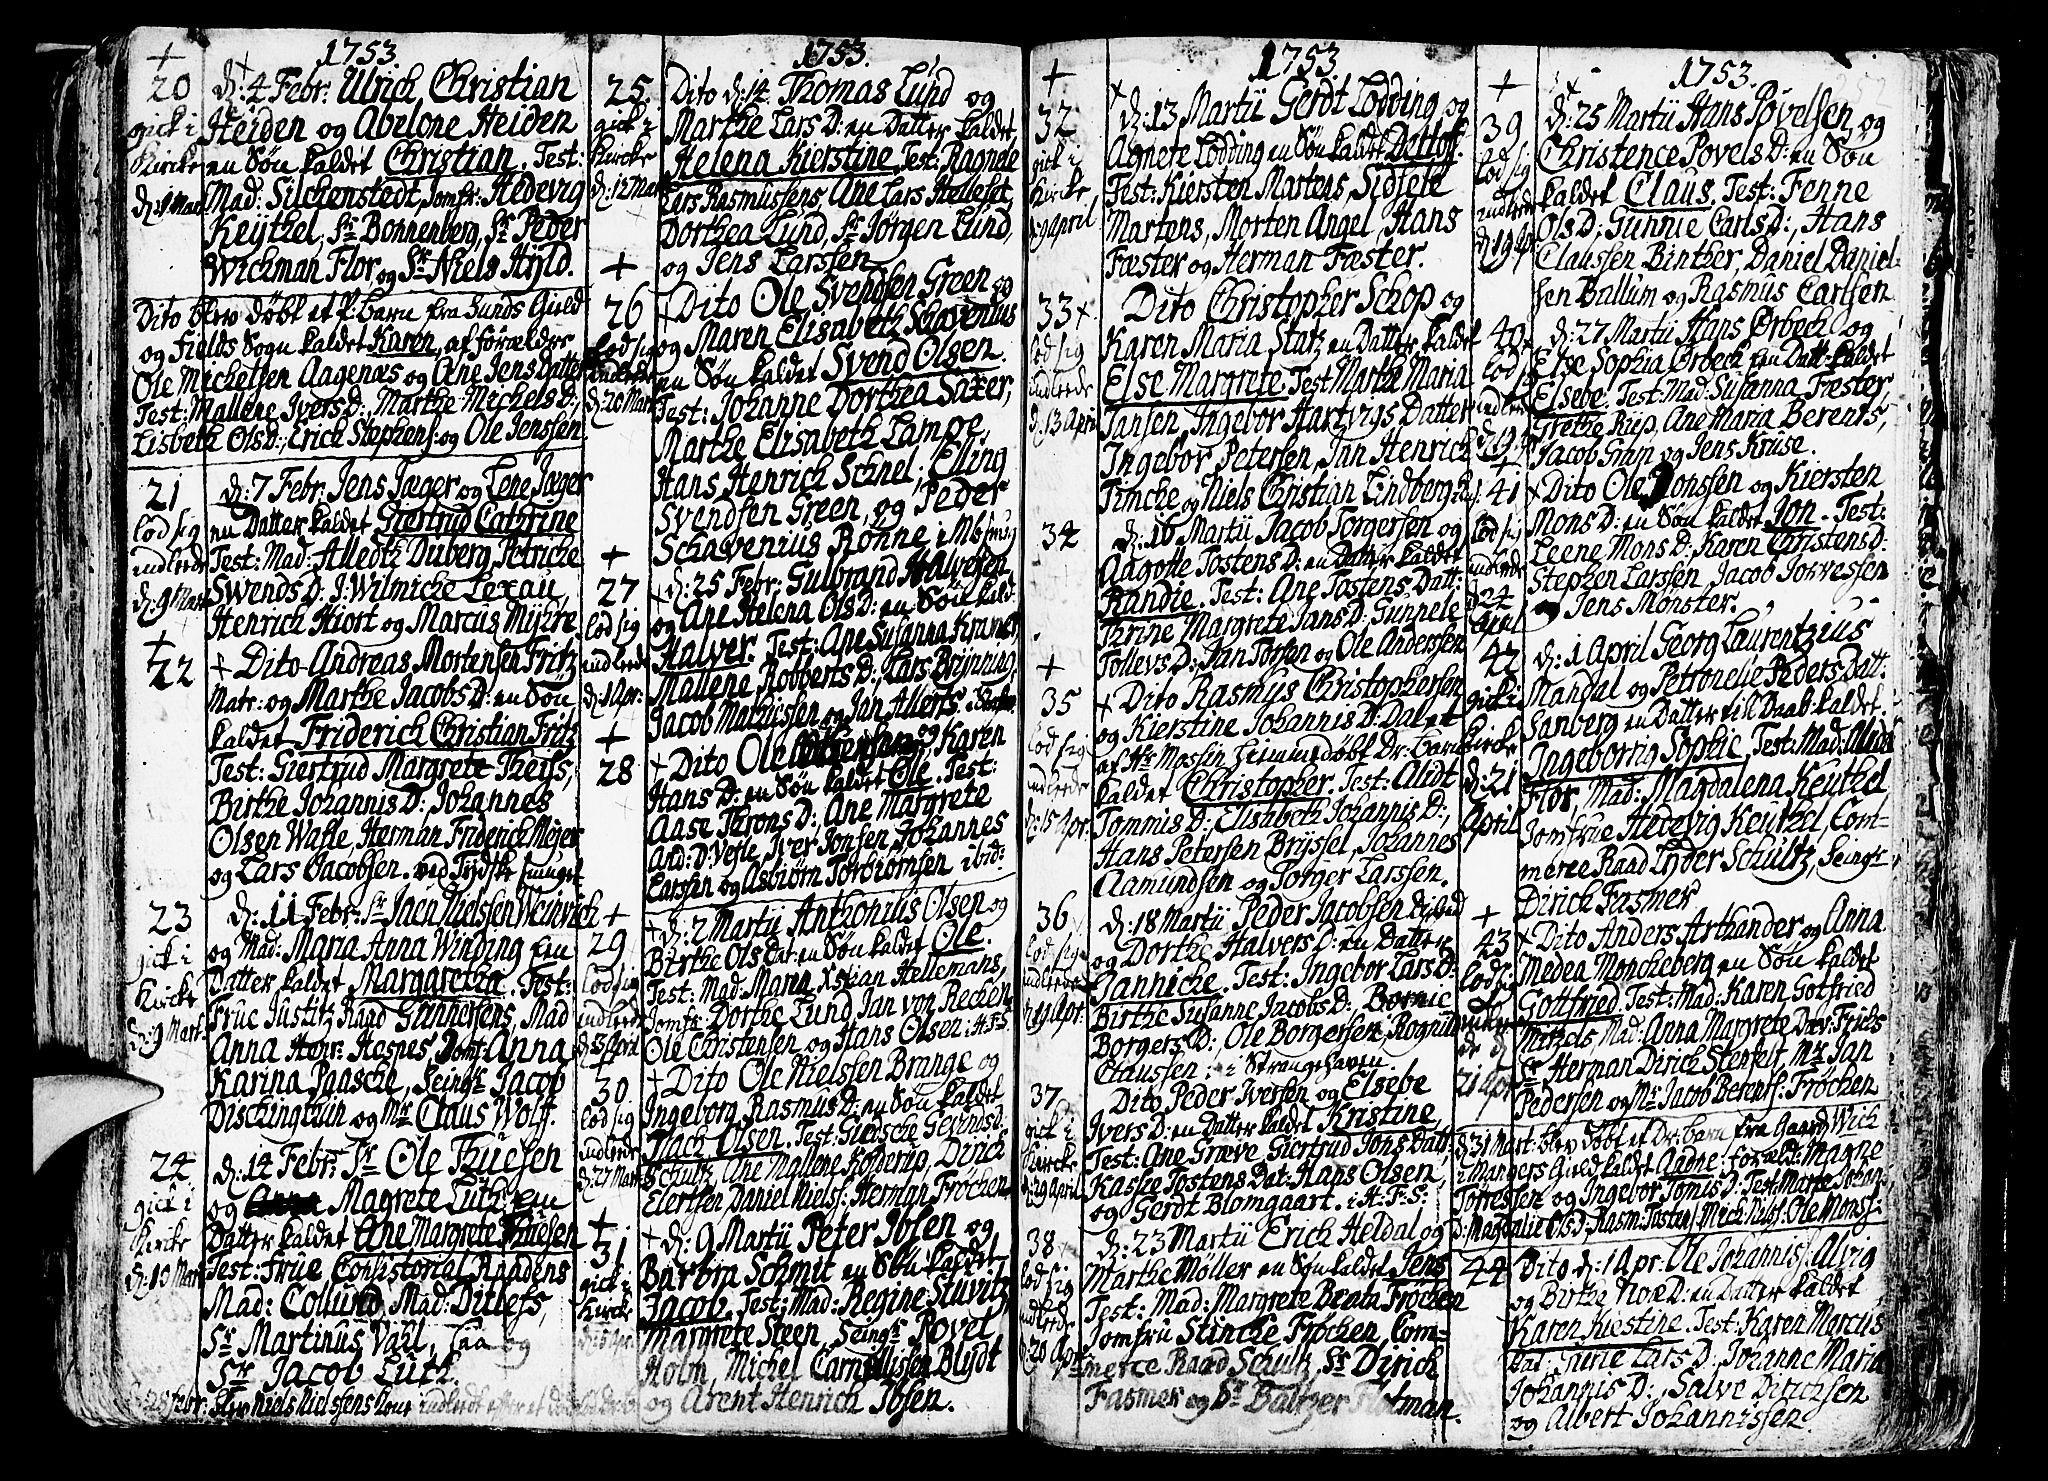 1753.
+
20
gick i
Kircke
d: 9 Mart
d: 4 Febr: Ulrich Christian
Heiden og Abelone Heiden
en Søn kaldet Christian. Test:
Mad: Silckenstedt, Jomfr: Hedevig
Keytzel, Sr Bonnenberg, Sr Peder
Wickman Flor, og Sr Niels Hyld.
Dito blev døbt et barn fra Sunds Gield
og Fields Sogn kaldet Karen, af forældre
Ole Michelsen Aagenæs og Ane Jens Datter
Test: Mallene Ivers D:, Marthe Michels D:
Lisbeth Ols D:, Erich Stephens: og Ole Jenssen
21
lod sig
indlede
d: 9 Mart
d: 7 Febr: Jens Jæger og Lene Jæger
en Datter kaldet Giertrud Cathrine
Test: Mad: Alledtz Duberg, Petricke
Swends D: J: Wilmicke Lexau,
Henrich Hiort og Marcus Myhre.
+
22
+ Dito Andreas Mortensen Fritz
Matr: og Marthe Jacobs D: en Søn
kaldet Friderich Christian Fritz
Test: Giertrud Margrete Theiss,
Birthe Johannis D: Johannes
Olsen Wasle, Herman Friderich Meyer
og Lars Jacobsen. ved Tydske smuget
23
gick i
Kircke
d: 9 Mart.
d: 11 Febr: Sr Jaen Nielssen Weinrich
og Mad: Maria Anna Winding en
Datter kaldet Margaretha. Test:
Frue Justitz Raad Gunnersens, Mad
Anna Henr: Haspes, Jomf: Anna
Karina Paasche, Seingr Jacob
Dischingtun og Mr Claus Wolf.
24
gick i
Kircke
d: 10 Mart
d: 14 Febr: Sr Ole Thuesen
og Magrete Lüth en
Datter kaldet Ane Margrete Thuesen
Test: Frue Consistorial Raadens
Mad: Collund, Mad: Ditlefs,
Sr Martinus Vahl, og
Sr Jacob Lüth.
d: 28 Febr: blev Niels Nielsens kone indledt efter et
1753.
25
gick i
Kircke
d: 12 Mart
Dito d: 14 Thomas Lund og
Marthe Lars D: en Datter kaldet
Helena Kierstine, Test: Ragnele
Lars Rasmussens, Ane Lars Helleset,
Dorthea Lund, Sr Jørgen Lund,
og Jens Larssen
+
26
lod sig
indlede
d: 20 Mart
+ Dito Ole Svendsen Green
og Maren Elisabeth Schavenius
en Søn kaldet Svend Olsen.
Test: Johanne Dorthea Saxer,
Marthe Elisabeth Lampe,
Hans Henrich Schnel; Elling
Svendsen Green, og Peder
Schavenius Rønne i Mb: smug
+
27
lod sig
indlede
d: 1 Apr:
+ d: 25 Febr: Gulbrand Halvesen
og Ane Helena Ols D: en Søn kald:
Halver. Test: Ane Susanna Kramer,
Mallene Robberts D:, Lars Brynning,
Jacob Mathissen og Jan Allerts i
+
28
+ Dito Ole og Karen
Hans D: en Søn kaldet Ole. Test:
Aase Throns D:, Ane Margrete
And: D: Vesle, Iver Jonsen, Johannes
Larssen og Asbiørn Torbiørnsen ibid:
+
29
lod sig
indlede
d: 15 April
+ d: 2 Martii Anthonius Olsen og
Birthe Ols Dat: en Søn kaldet Ole.
Test: Mad: Maria Xstian Hellemans,
Jomfr Dorthe Lund, Jan von Recken,
Ole Christensen og Hans Olsen: H: F: S:
+
30
lod sig
indlede
d: 27 Mart
+ Dito Ole Nielssen Brange og
Ingeborg Rasmus D: en Søn kaldet
Mach Olsen. Test: Giesche Gevinds D:
Schultz, Ane Mallene Kolderup, Dirich
Elertsen, Daniel Niels: Herman Frøchen
+
31
gick i
Kircke
+ d: 9 Martii Peter Ibsen og
Barbra Schmit en Søn kaldet
Jacob. Test: Mad: Regine Stuvitz,
Margrete Steen, Seingr Povel
Holm, Michel Cornelissen Blydt
og Arent Henrich Ibsen.
1753.
+
32
gick i
Kircke
d: 9 April
+ d: 13 Martii Gerdt Lødding og
Agnete Lødding en Søn kaldet Dettlof.
Test: Kiersten Martens, Sidsele
Martens, Morten Angel, Hans
Fæster og Herman Fæster.
33 +
lod sig
indlede
d: 13 April
Dito Christopher Schop og
Karen Maria Statz en Datter kaldet
Else Margrete. Test: Marthe Maria
Jansen, Ingebor Hartvigs Datter
Ingebor Petersen, Jan Henrich
Timcke og Niels Christian Lindberg
34
d: 16 Martii Jacob Torgersen og
Aagotte Tostens D: en Datter kaldet
Randie. Test: Ane Tostens Datt:
Thrine Margrete Jans D: Gunnele
Tollevs D: Jan Torsen og Ole Andersen
+
35
lod sig
indlede
d: 15 Apr.
+ Dito Rasmus Christophersen
og Kierstine Johannis D: Dalet
af Hr Mossin hiemmedøbt Dr: barn
kaldet Christopher. Test: Alidt
Tommis D:, Elisabeth Johannis D:,
Hans Petersen Bryssel, Johannes
Aamundsen og Torger Larssen.
36
lod sig
indlede
d: 19 Apr.
d: 18 Martii Peder Jacobsen
og Dorthe Halvers D: en Datter
Jannicke. Test: Ingebor Lars D:
Birthe Susanne Jacobs D: Bornie
Borgers D: Ole Borgersen, Rognild
Claussen i Strangehaven.
37
gick i
Kircke
d: 29 April
Dito Peder Iversen og Elsebe
Ivers D: en Datter kaldet Kristine
Test: Ane Græve, Giertrud Jons Datt:
Kasie Tostens Dat: Hans Olsen
og Gerdt Blomgaart. i H: F: S:
38
lod sig
indlede
d: 20 Apr
d: 23 Martii Erich Heldal og
Marthe Møller en Søn kaldet Jens
Test: Mad: Margrete Beata Frøchen
Jomfru Stincke Frøchen, Com-
merce Raad Schultz, Sr Dirich
Fasmer og Sr Baltzer Flotman.
1753.
252
+
39
lod sig
indlede
d: 19 Apr
d: 25 Martii Hans Povelsen og
Christence Povels D: en Søn
kaldet Claus. Test: Fenne
Ols D: Gunnie Carls D:, Hans
Claussen Binther, Daniel Daniel-
sen Ballum og Rasmus Carlsen
40
lod sig
indlede
d: 19 Apr
d: 27 Martii Hans Ørbech og
Else Sophia Ørbech en Datt: kaldet
Elsebe. Test: Mad: Susanna Fæster,
Grethe Riep, Ane Maria Berents,
Jacob Gram og Jens Kruse.
+
41
lod sig
indlede
d: 24
April
+ Dito Ole Jonssen og Kiersten
Mons D: en Søn kaldet Jon. Test:
Leene Mons D: Karen Christens D:
Stephen Larssen, Jacob Jorvessen
og Jens Mønster.
42
gick i
Kircke
d: 21
April
d: 1 April Georg Laurentzius
Mandal og Petronelle Peders Datt:
Sanberg en Datter til Daab kaldet
Ingeborrig Sophie, Test: Mad: Alida
Flor, Mad: Magdalena Keuthel
Jomfrue Hedevig Keuthel, Com-
merce Raad Lyder Schultz, Seingr
Dirich Fasmer
+
43
lod sig
indlede
d:
21 Apr
+ Dito Anders Arthander og Anna
Medea Monckeberg en Søn kaldet
Gottfried Test: Mad: Karen Gotfried
Michels, Mad: Anna Margrete Frichs
Sr Herman Dirich Stenfelt, Mr Jan
Pedersen og Mr Jacob Berents: Frøchen
d: 31 Mart: blev døbt et Dr: barn fra Gaard Wick
i Mangers Gield kaldet Aadne. foræld: Magne
Torressen og Ingebor Tomis D: Test: Marte Johan:
D: Magdalie Ols D: Rasm: Tosten, Mich: Niels: Ole Monss:
44
Dito d: 1 Apr: Ole Johanniss: Alvig
og Birthe Noe D: en Datter kaldet
Karen Kiestine. Test: Karen Marcus
Dat: Gurie Lars D: Johanne Maria
Johannis D:, Salve Dirichsen
og Albert Johannissen.